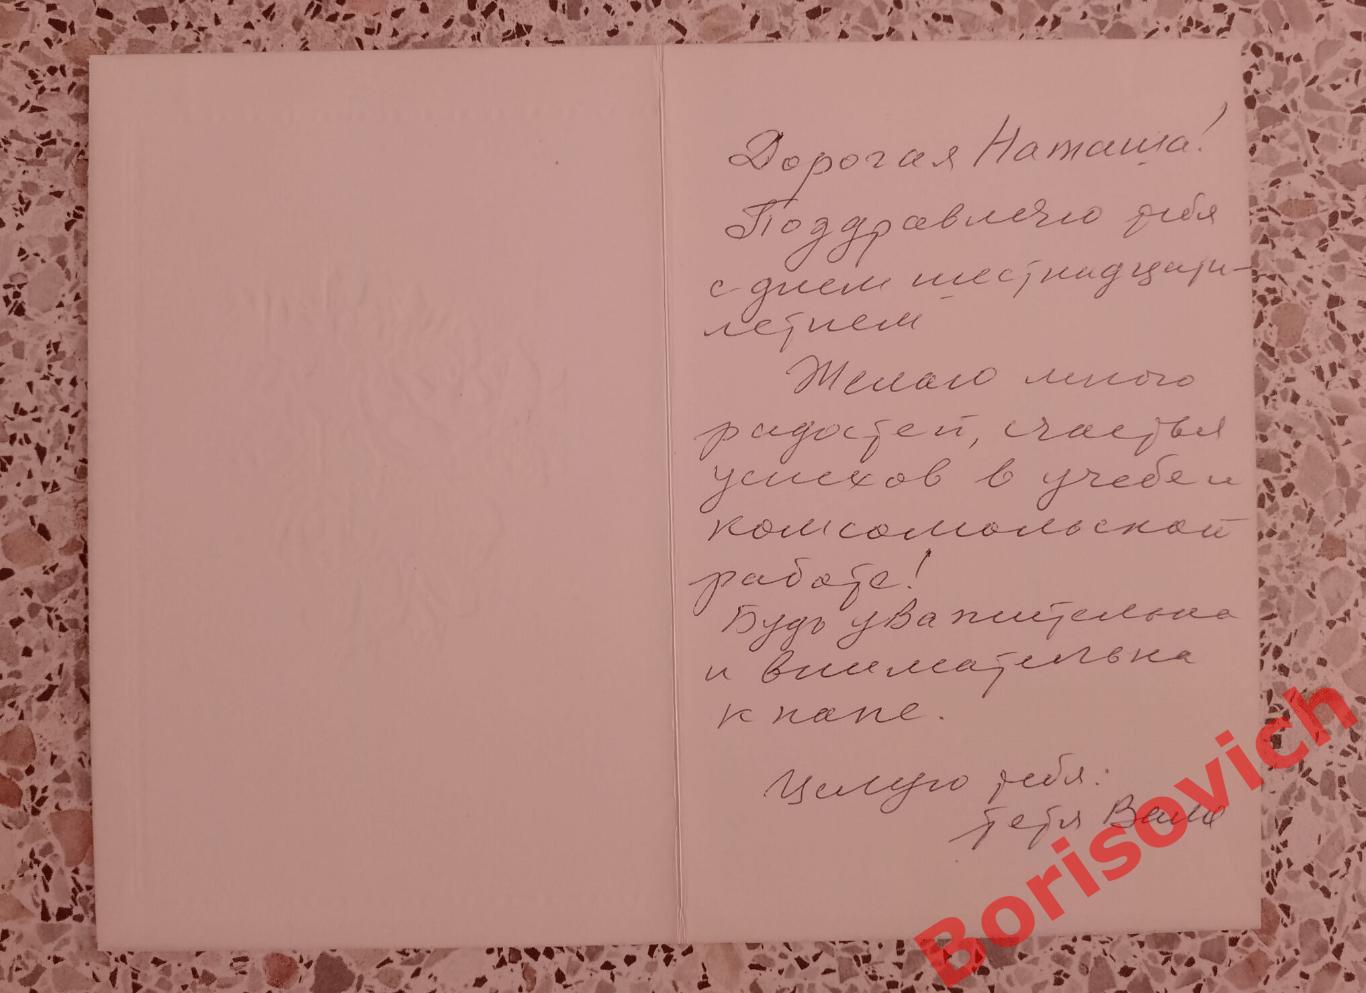 Дорогая Наташа!
Поздравляю тебя
с днем шестнадцати-
летием
Желаю много
радостей, счастья
успехов в учебе и
комсомольской
работе!
Будь уважительна
и внимательна
к папе.
Целую тебя:
тетя Валя
Borisovich